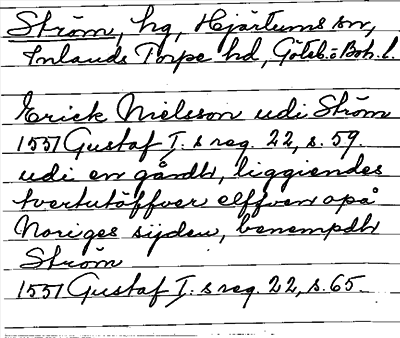 Ström, hg, Hjärtums sn,
Inlands Torpe hd, Göteb. o Boh. l.
Erick Nielsson udi Ström
1551 Gustaf I. s reg. 22, s. 59.
udi en gårdh, liggiendes
tvertutöffver elffven opå
Noriges sijden, benempdh
Ström
1551 Gustaf I. s reg. 22, s. 65.